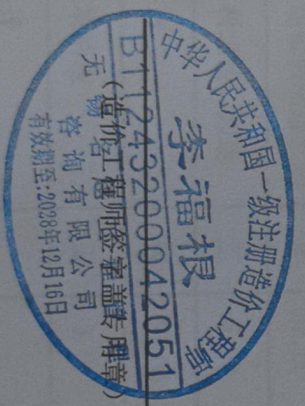 中华人民共和国一级注册造价工程师
李福根
B11243200042051
(造价工程师签字盖专用章)
无锡
咨询有限公司
有效期至:2028年12月16日